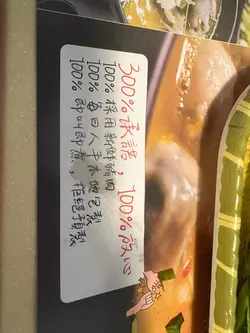 300%承諾，100%放心
100% 採用新鮮豬肉
100% 每日人手本包製
100% 即叫即煮，拒絕預製